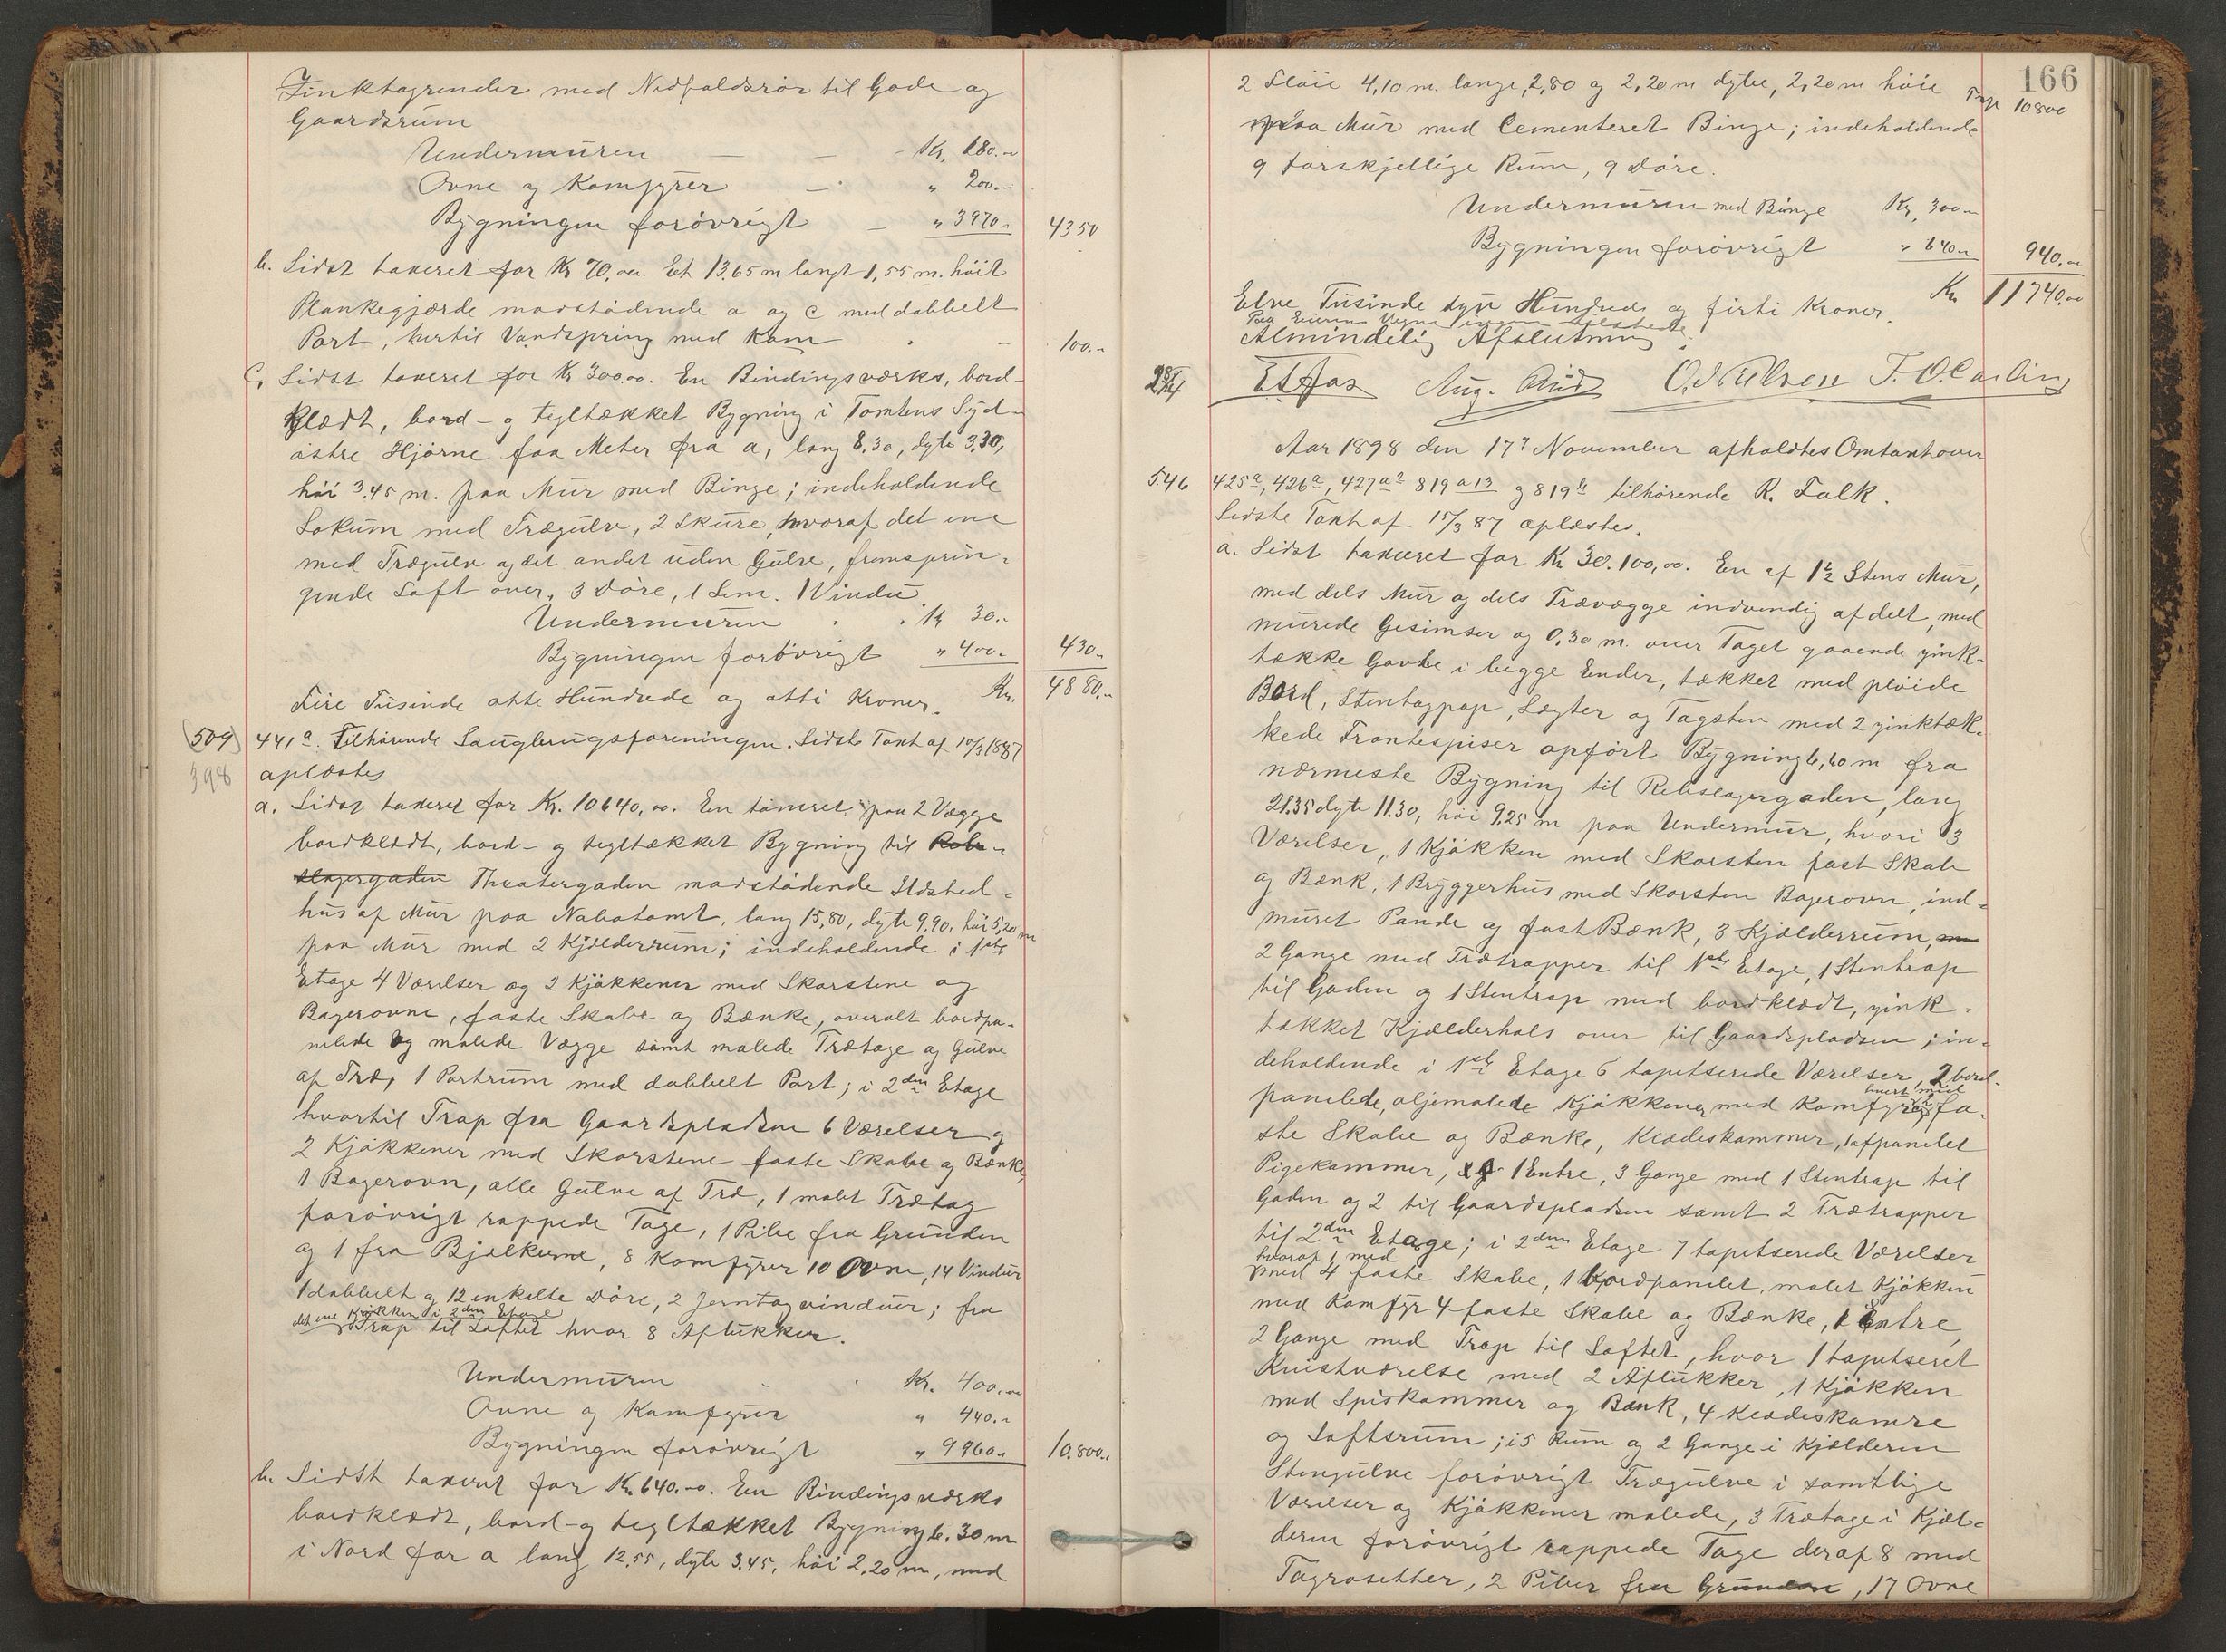 Zinktagrender med Nedfaldsrör til Gade og
Gaardsrum
Undermuren — — - Kr. 180.-
Ovne og Komfyrer — " 200.-
Bygningen forövrigt — " 3970.- 4350
b. Sidst taxeret for Kr 70,00. Et 13,65 m langt 1,55 m. höit
Plankegjærde modstödende a og c med dobbelt
Port, hertil Vandspring med Kum - 100.-
c. Sidst taxeret for Kr 300,00. En Bindingsværks, bord-
klædt, bord- og tegltækket Bygning i Tomtens Syd-
östre Hjörne faa Meter fra a, lang 8,30, dybe 3,30,
höi 3,45 m. paa Mur med Binge; indeholdende
Lokum med Trægulv, 2 Skure, hvoraf det ene
med Trægulv og det andet uden Gulve, fremsprin-
gende Loft over, 3 Döre, 1 Lem. 1 Vindu
Undermuren . . Kr 30.-
Bygningen forövrigt " 400.- 430.-
Fire Tusinde otte Hundrede og otti Kroner. Kr. 4880.-
(509) 441 a. Tilhörende Saugbrugsforeningen. Sidste Taxt af 10/3 1887
398 oplæstes
a. Sidst taxeret for Kr. 10640,00. En tömret, paa 2 Vægge
bordklædt, bord- og tegltækket Bygning til Reb-
slagergaden Theatergaden modstödende Ildsted-
hus af Mur paa Nabotomt, lang 15,80, dybe 9,90, höi 5,20 m
paa Mur med 2 Kjælderrum; indeholdende i 1ste
Etage 4 Værelser og 2 Kjökkener med Skorstene og
Bagerovne, faste Skabe og Bænke, overalt bordpa-
nelede og malede Vægge samt malede Trætage og Gulve
af Træ, 1 Portrum med dobbelt Port; i 2den Etage
hvortil Trap fra Gaardspladsen 6 Værelser og
2 Kjökkener med Skorstene faste Skabe og Bænke,
1 Bagerovn, alle Gulve af Træ, 1 malet Trætag
forövrigt rappede Tage, 1 Pibe fra Grunden
og 1 fra Bjælkerne, 8 Komfyrer 10 Ovne, 14 Vinduer
1 dobbelt og 12 enkelte Döre, 2 Jerntagvinduer; fra
det ene Kjökken i 2den Etage
Trap til Loftet hvor 8 Aflukker.
Undermuren . Kr. 400.00
Ovne og Komfyrer " 440.-
Bygningen forövrigt " 9960.- 10.800.-
b. Sidst taxeret for Kr. 640.00. En Bindingsværks
bordklædt, bord- og tegltækket Bygning 6,30 m
i Nord for a lang 12,55, dybe 3,45, höi 2,20 m, med
166
2 Flöie 4,10 m. lange, 2,80 og 2,20 m dybe, 2,20 m höie Trsp 10800
paa Mur med Cementeret Binge; indeholdende
9 forskjellige Rum, 9 Döre.
Undermuren med Binge Kr. 300.-
Bygningen forövrigt " 640.- 940.00
Kr 11740,00
Elve Tusinde syv Hundrede og firti Kroner.
Paa Eierens Vegne ingen tilstede
Almindelig Afslutning.
Aug. Rüd O. J. Nilsen F. O. Carling
Aar 1898 den 17de November afholdtes Omtaxt over
546 425a, 426a, 427a2 819a13 og 819b tilhörende R. Falk.
Sidste Taxt af 15/3 87 oplæstes.
a. Sidst taxeret for Kr 30.100,00. En af 1 1/2 Stens Mur,
med dels Mur og dels Trævægge indvendig afdelt, med
murede Gesimser og 0,30 m. over Taget gaaende zink-
tække Gavle i begge Ender, tækket med plöiede
Bord, Stentagpap, Lægter og Tagsten med 2 zinktæk-
kede Frontespiser opfört Bygning 6,60 m fra
nærmeste Bygning til Rebslagergaden, lang
21.35 dybe 11.30, höi 9,25 m paa Undermur, hvori 3
Værelser, 1 Kjökken med Skorsten fast Skab
og Bænk, 1 Bryggerhus med Skorsten Bagerovn, ind-
muret Pande og fast Bænk, 3 Kjælderrum,
2 Gange med Trætrapper til 1ste Etage, 1 Stentrap
til Gaden og 1 Stentrap med bordklædt, zink-
tækket Kjælderhals over til Gaardspladsen; in-
deholdende i 1ste Etage 6 tapetserede Værelser, 2 bord-
panelede, oljemalede Kjökkener hvert med
med Komfyr og fa-
ste Skabe og Bænke, Klædeskammer, 1 afpanelet
Pigekammer, 1 Entre, 3 Gange med 1 Stentrap til
Gaden og 2 til Gaardspladsen samt 2 Trætrapper
til 2den Etage; i 2den Etage 7 tapetserede Værelser
hvoraf 1 med
med 4 faste Skabe, 1 bordpanelet, malet Kjökken
med Komfyr 4 faste Skabe og Bænke, 1 Entre,
2 Gange med Trap til Loftet, hvor 1 tapetseret
Kvistværelse med 2 Aflukker, 1 Kjökken
med Spiskammer og Bænk, 4 Klædeskamre
og Loftsrum; i 5 Rum og 2 Gange i Kjælderen
Stengulve forövrigt Trægulve i samtlige
Værelser og Kjökkener malede, 3 Trætage i Kjæl-
deren forövrigt rappede Tage deraf 8 med
Tagrosetter, 2 Piber fra Grunden, 17 Ovne